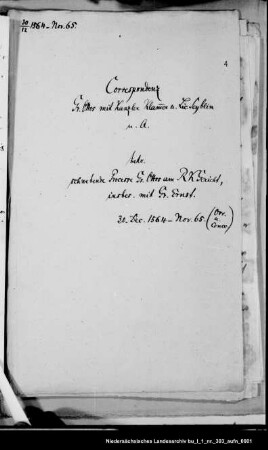 30/12 1564 - Nov. 65.
4
Correspondenz
Gr. Otto mit Kanzler u. Lic.
u. A.
betr.
schwebende Processe Gr. Otto am R. K. Gericht,
insbes. mit Gr. Ernst.
30. Dec. 1564 - Nov. 65. (Orr. u. Conc.)
Niedersächsisches Landesarchiv bu_l_1_nr_303_aufn_6901